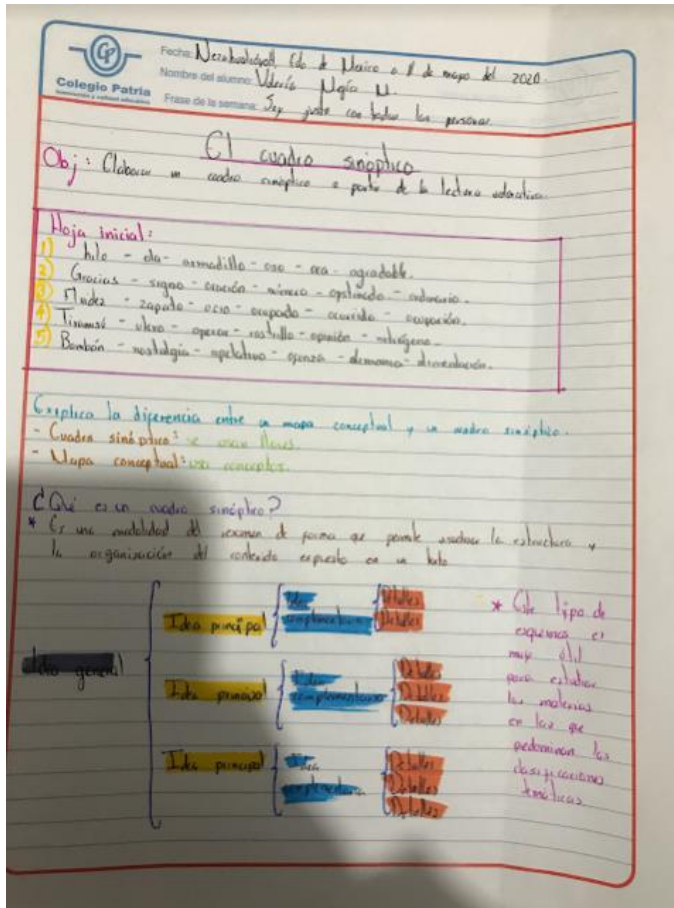 CP
Colegio Patria
Fecha: Nezahualcóyotl Edo de México a 8 de mayo del 2020.
Nombre del alumno: Valeria Mejía M.
Frase de la semana: Soy justo con todas las personas
El cuadro sinóptico
Obj: Elaborar un cuadro sinóptico a partir de la lectura
Hoja inicial:
1) hilo - ola - armadillo - oso - - agradable.
2) Gracias - signo - oración - minero - - ordinario.
3) - zapato - ocio - ocupado - ocurrido - ocupación.
4) - - operar - rastrillo - opinión - nitrógeno.
5) Bombón - nostalgia - apelativo - - - alimentación.
Explica la diferencia entre un mapa conceptual y un cuadro sinóptico.
- Cuadro sinóptico: se usan llaves.
- Mapa conceptual: usa conceptos.
¿Qué es un cuadro sinóptico?
* Es una modalidad del resumen de forma que permite la estructura y
la organización del contenido expuesto en un texto
Idea general
Idea principal
Idea
complementaria
Detalles
Detalles
Idea principal
Idea
complementaria
Detalles
Detalles
Detalles
Idea principal
Idea
complementaria
Detalles
Detalles
Detalles
* Este tipo de
esquemas es
muy útil
para estudiar
las materias
en las que
predominan las
clasificaciones
temáticas